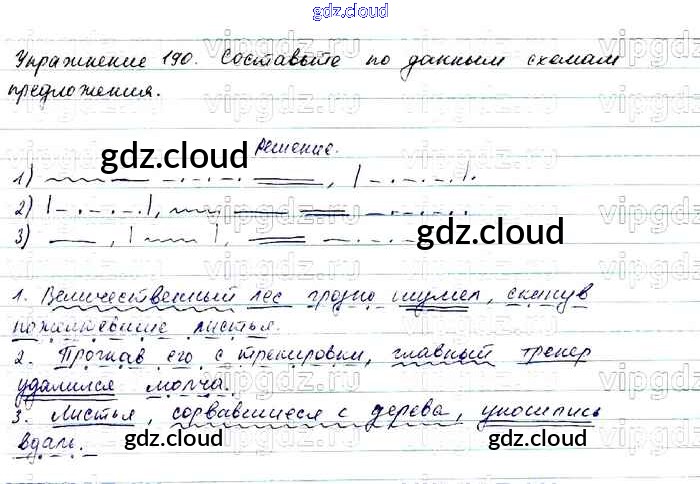 gdz.cloud
Упражнение 190. Составьте по данным схемам
предложения.
Решение.
gdz.cloud
1)
2)
3)
gdz.cloud
1. Величественный лес грозно шумел, скинув
пожелтевшие листья.
2. Прогнав его с тренировки, главный тренер
удалился молча.
3. Листья, сорвавшиеся с дерева, уносились
вдаль.
gdz.cloud
gdz.cloud